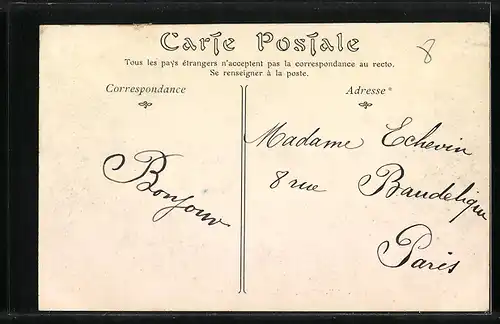 Carte Postale
8
Tous les pays étrangers n'acceptent pas la correspondance au recto.
Se renseigner à la poste.
Correspondance
Adresse*
Bonjour
Madame Echevin
8 rue Baudelique
Paris